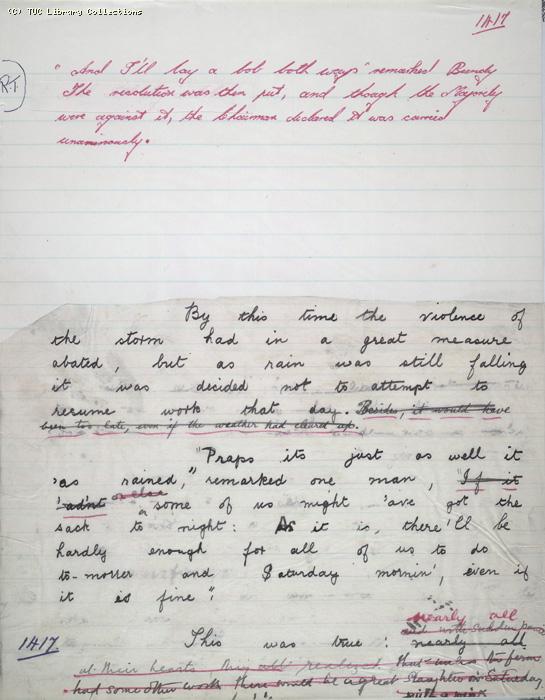 (C) TUC Library Collections
1417
R.T.
"And I'll lay a bob both ways" remarked Bundy
The resolution was then put, and though the Majority
were against it, the Chairman declared it was carried
unanimously.
By this time the violence of
the storm had in a great measure
abated, but as rain was still falling
it was decided not to attempt to
resume work that day. Besides, it would have
been too late, even if the weather had cleared up.
"Praps its just as well it
'as rained," remarked one man, "If it
'adn't or else some of us might 'ave got the
sack to night: As it is, there'll be
hardly enough for all of us to do
to-morrer and Saturday mornin', even if
it is fine".
nearly all
and with sudden
1417. This was true: nearly all
at their hearts they all realized that unless the firm
had some other work there would be a great Slaughter on Saturday